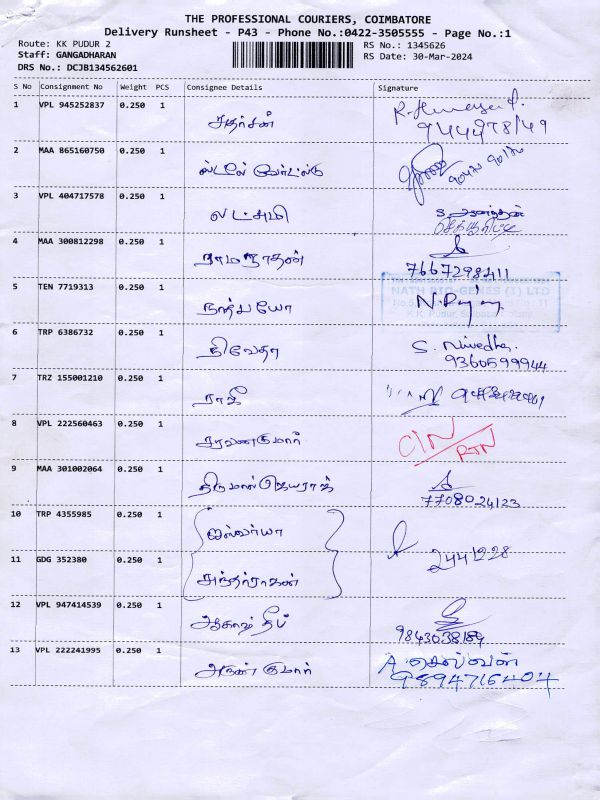 THE PROFESSIONAL COURIERS, COIMBATORE
Delivery Runsheet - P43 - Phone No.:0422-3505555 - Page No.:1
Route: KK PUDUR 2
RS No.: 1345626
Staff: GANGADHARAN
RS Date: 30-Mar-2024
DRS No.: DCJB134562601
S No Consignment No Weight PCS Consignee Details Signature
1 VPL 945252837 0.250 1 சுதர்சன்
2 MAA 865160750 0.250 1
3 VPL 404717578 0.250 1 லட்சுமி
4 MAA 300812298 0.250 1 ராமநாதன் 7667298411
5 TEN 7719313 0.250 1 நாத்பயோ
NATH BIO-GENES (I) LTD
K.K. Pudur,
6 TRP 6386732 0.250 1 நிவேதா S. Nivedha.
9360599944
7 TRZ 155001210 0.250 1 ராஜீ
8 VPL 222560463 0.250 1 சரவணகுமார் CIN/RTN
9 MAA 301002064 0.250 1 திருமால்ஜெயராஜ்
7708024123
10 TRP 4355985 0.250 1 ஐஸ்வர்யா
2441228
11 GDG 352380 0.250 1
12 VPL 947414539 0.250 1 ஆகாஷ் தீப்
9843038189
13 VPL 222241995 0.250 1 அருண் குமார் A. செல்வன்
9894716404